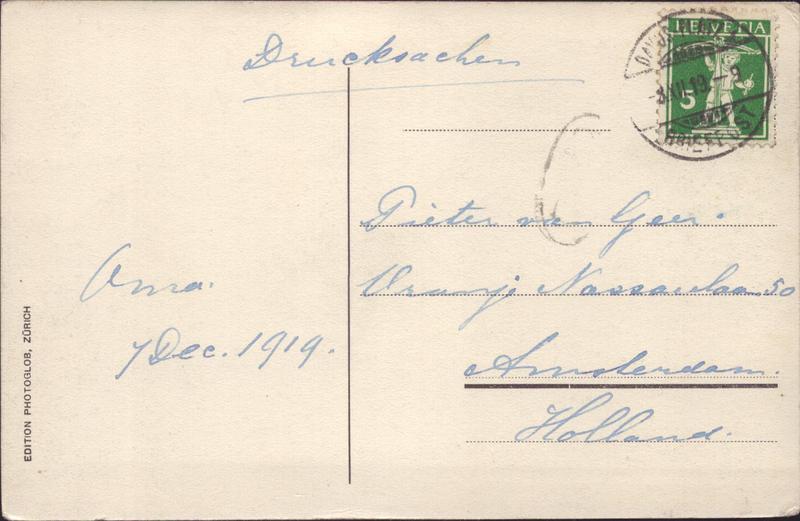 Drucksachen
HELVETIA
5
8.XII.19.–9
BRIEFPOST
Pieter van Geer.
Oranje Nassaulaan 50
Amsterdam.
Holland.
Oma.
7 Dec. 1919.
EDITION PHOTOGLOB, ZÜRICH